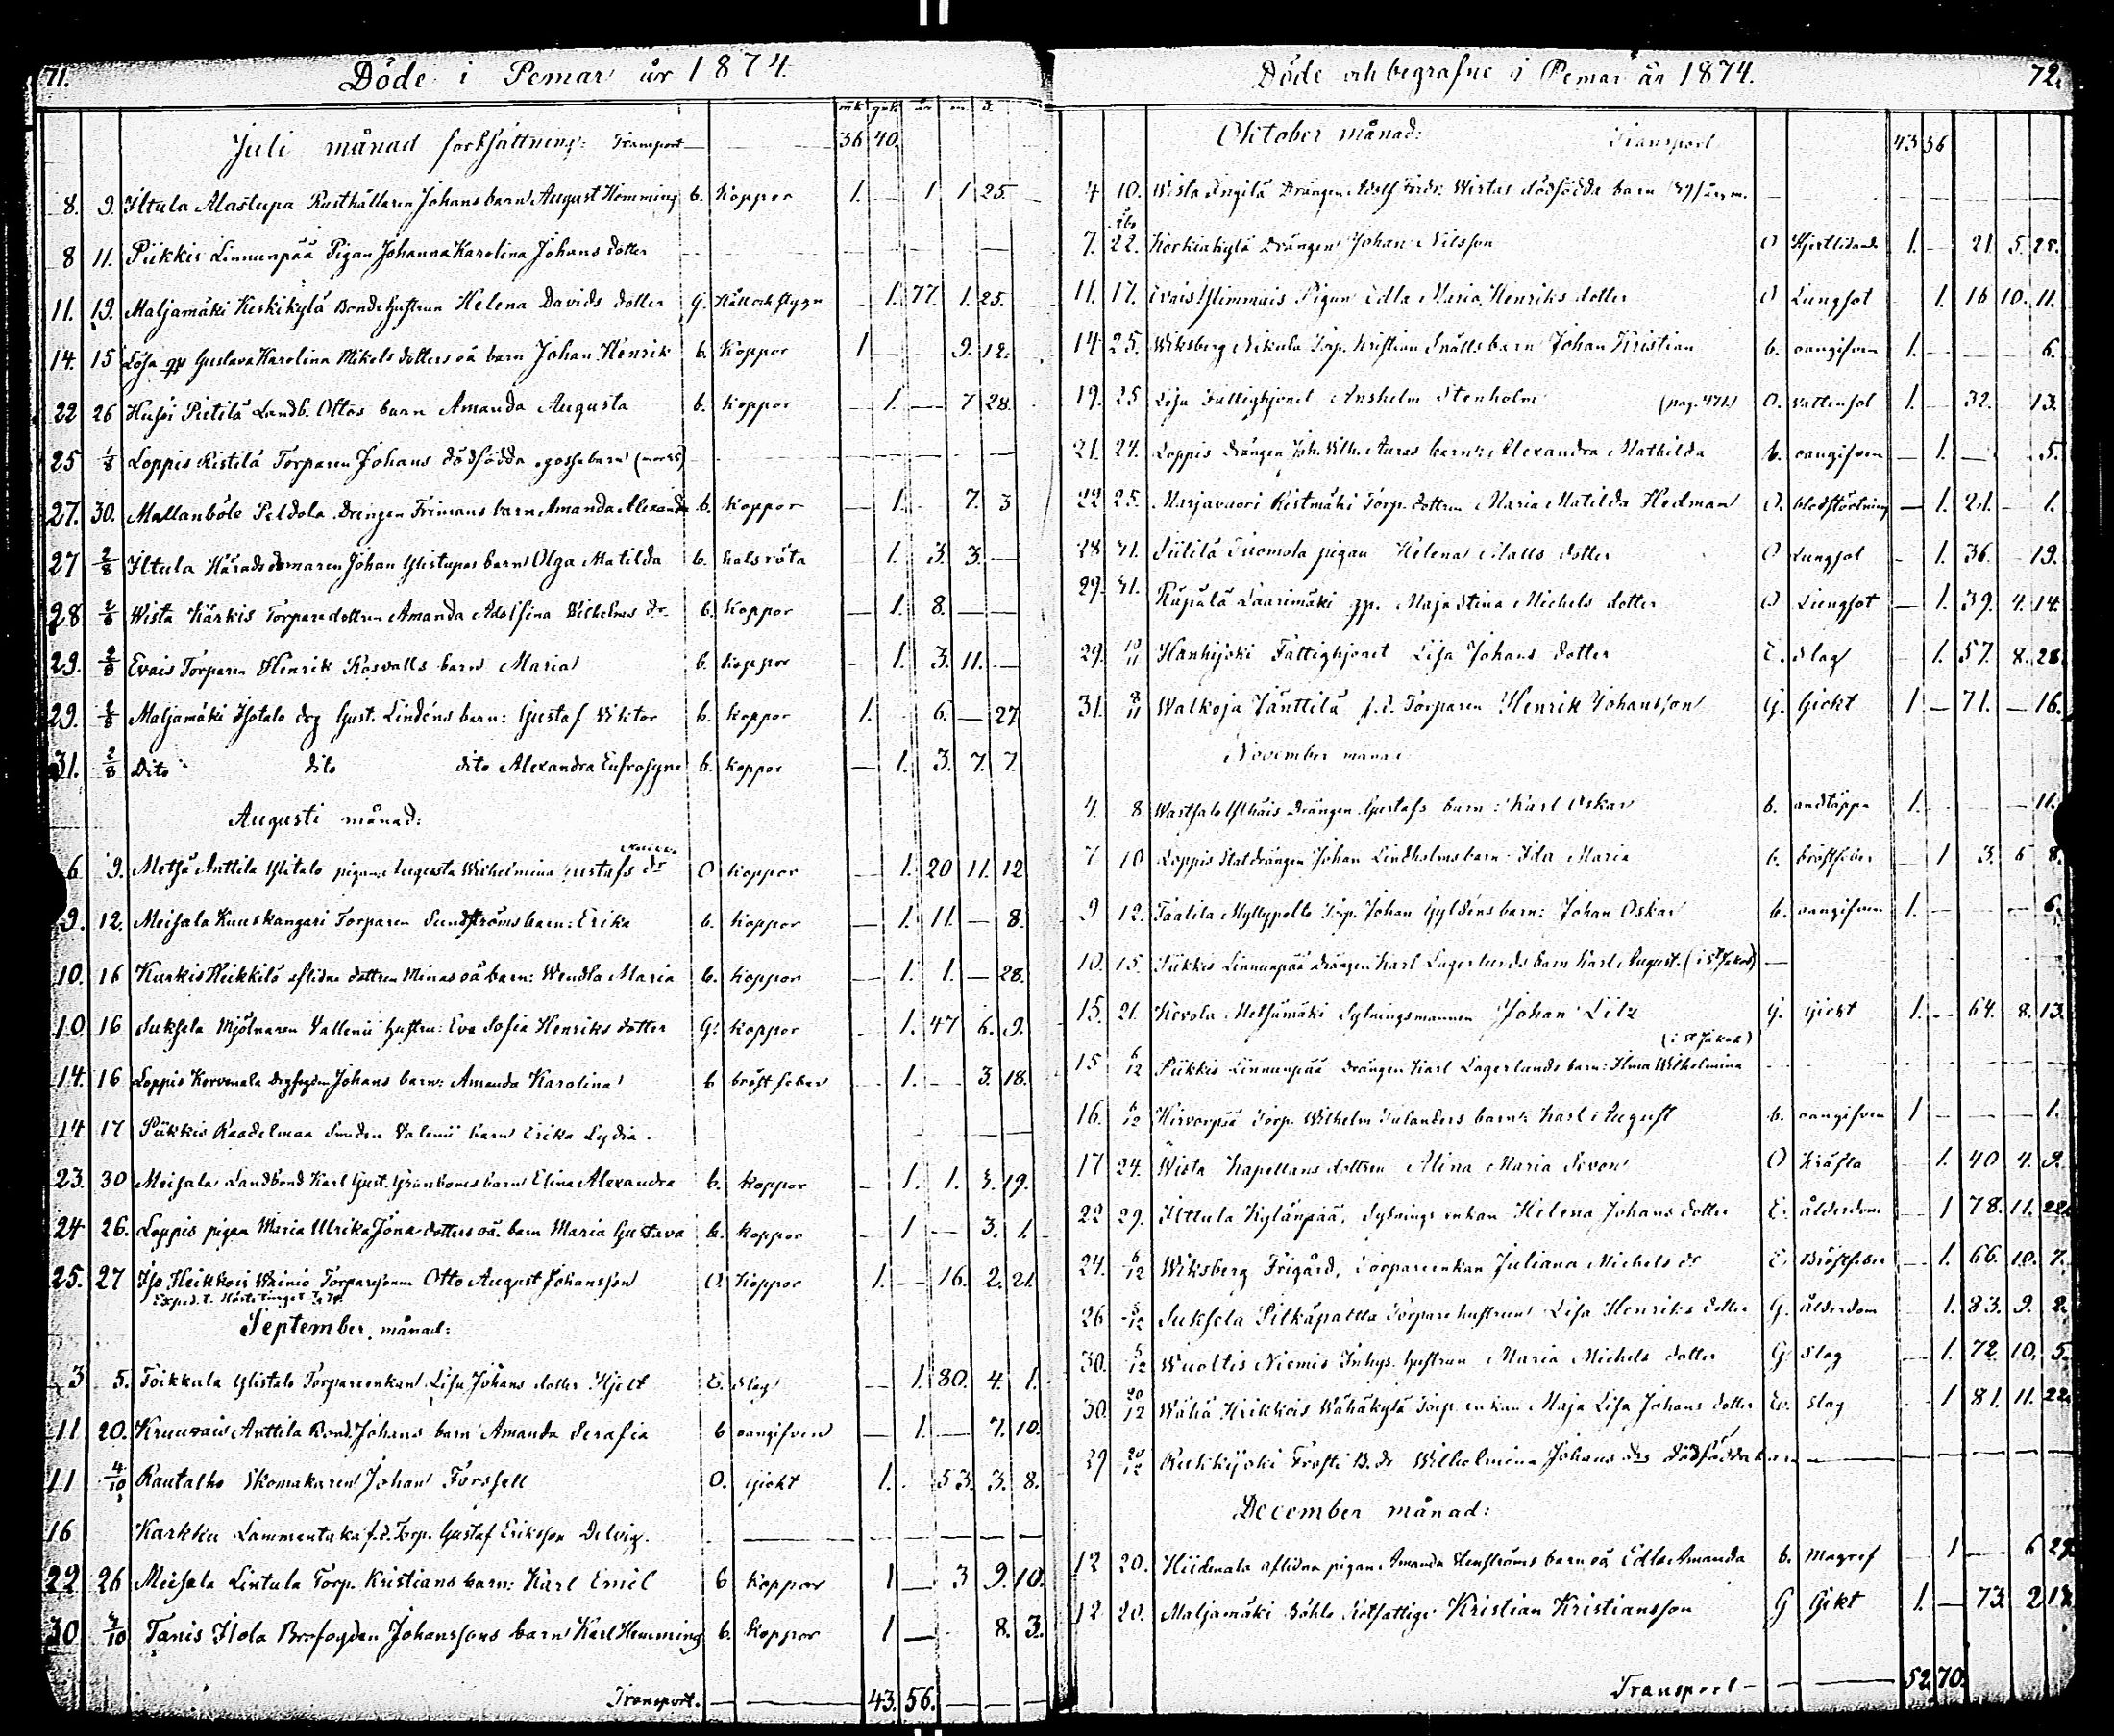 71.
Döde i Pemar år 1874.
mk qvk år m. d.
Juli månad fortsättning: Transport 36 40.
8. 9. Iltula Alastupa Rusthållaren Johans barn August Hemming b. Koppor 1. — 1 1 25.
8 11. Piikkis Linnunpää Pigan Johanna Karolina Johans dotter
11. 19. Maljamäki Keskikylä Bondehustrun Helena Davids dotter G. Håll och styng 1. 77. 1. 25.
14. 15 Lösa qp Gustava Karolina Mikels dotters oä barn Johan Henrik b. Koppor 1 — 9. 12.
22 26 Pietilä Landb. Ottos barn Amanda Augusta b. Koppor — 1. — 7 28.
25 1/8 Loppis Ristilä Torparen Johans dödfödda gossebarn
27. 30. Mallanböle Peldola Drengen Frimans barn Amanda Alexandra b. Koppor — 1. 7. 3
27 2/8 Iltula Häradsdomaren Johan Ylistupas barn Olga Matilda b. halsröta 1. 3. 3. —
28 2/8 Wista Kärkis Torparedottren Amanda Adolfina Wilhelms dr b. Koppor — 1. 8. — —
29. 2/8 Evais Torparen Henrik Rosvalls barn Maria b. Koppor — 1. 3. 11. —
29. 2/8 Maljamäki Isotalo drg Gust. Lindéns barn: Gustaf Viktor b. Koppor 1. 6. — 27
31. 2/8 Dito dito dito Alexandra Eufrosyne b. Koppor — 1. 3. 7. 7.
Augusti månad:
6 9. Metsä Anttila Ylitalo pigan Augusta Wilhelmina Gustafs dr O Koppor — 1. 20 11. 12
9. 12. Meisala Kuuskangari Torparen Sundströms barn: Erika b. Koppor — 1. 11. — 8.
10. 16 Kurkis Heikkilä aflidne dottren Minas oä barn: Wendla Maria b. Koppor — 1. 1. — 28.
10 16 Suksela Mjölnaren Vallenii hustru: Eva Sofia Henriks dotter G. Koppor — 1. 47 6. 9.
14. 16 Loppis Korvenala Johans barn: Amanda Karolina b bröstfeber 1. — 3. 18.
14 17 Piikkis Raadelmaa Smeden Valenii barn Erika Lydia.
23. 30 Meisala Landbond Karl Gust. Granboms barn Elina Alexandra b. Koppor — 1. 1. 3. 19.
24 26. Loppis pigan Maria Ulrika Jöna dotters oä. barn Maria Gustava b. Koppor — 1 — 3. 1.
25. 27 Iso Heikkois Wainio Torparesonen Otto August Johansson O. Koppor 1. — 16. 2. 21.
September månad:
3 5. Toikkala Ylistalo Torpareenkan Lisa Johans dotter Hjelt E. Slag — 1. 80. 4. 1.
11 20. Kruuvais Anttila Bond. Johans barn Amanda Serafia b oangifven — 1. — 7. 10.
11 4/10 Rautalho Skomakaren Johan Forssell O. Gickt 1. 53. 3. 8.
16 Karkku Lammentaka f.d. Torp. Gustaf Eriksson Delvig.
22 26 Meisala Lintula Torp. Kristians barn: Karl Emil b Koppor 1 — 3 9. 10.
30 4/10 Tanis Isola Brofogden Johanssons barn Karl Hemming b. Koppor 1 — 8. 3.
Transport. 43. 56.
Döde och begrafne i Pemar år 1874.
72.
Oktober månad: Transport 43 56
4 10. Wista Angilä Drängen Adolf Fredr: Wirtas dödfödda barn
7. 22. Korkiakylä Drängen Johan Nilsson O 1. — 21. 5. 25.
11. 17. Evais Ylimmäis Pigan Edla Maria Henriks dotter O Lungsot 1. 16 10. 11.
14 25. Wiksberg Nikula Torp. Kristian Snälls barn Johan Kristian b. oangifven 1. 6.
19. 25 Lösa Fattighjonet Anshelm Stenholm (pag. 471.) O. Vattensot 1. 32. 13.
21. 24. Loppis drängen Joh. Wilh. Auras barn: Alexandra Mathilda b. oangifven 1. 5.
22 25. Marjavuori Ristmäki Torp. dottren Maria Matilda Hedman O. blodstörtning — 1. 21. 1.
28 31. Siitilä Tuomola pigan Helena Matts dotter O Lungsot 1. 36. 19.
29. 31. Räpälä Laarimäki qp. Maja Stina Michels dotter O Lungsot 1. 39. 4. 14.
29. 10/11 Hanhijoki Fattighjonet Lisa Johans dotter E. Slag 1. 57. 8. 28.
31. 8/11 Walkoja Jänttilä f.d. Torparen Henrik Johansson G. Gickt 1 — 71. — 16.
November månad
4. 8 Drängen Gustafs barn: Karl Oskar b. andtäppa 1. — 11.
7 10 Loppis Statdrängen Johan Lindholms barn Ida Maria b. bröstfeber 1 3. 6 8.
9 12. Taatila Myllypelto Torp. Johan Gyldéns barn: Johan Oskar b. oangifven 1. — 6.
10. 15. Piikkis Linnunpää drängen Karl Lagerlunds barn Karl August. (i St Jakob)
15. 21. Kevola Metsämäki Sytningsmannen Johan Litz G. Gickt 1. 64. 8. 13.
(i St Jakob)
15 6/12 Piikkis Linnunpää drängen Karl Lagerlunds barn: Ilma Wilhelmina
16. 6/12 Hirvorpää Torp. Wilhelm Tulanders barn: Karl August b. oangifven 1 1.
17 24. Wista Kapellans dottren Alina Maria Sevon O Kräfta 1. 40 4. 9.
22 29. Ilttula Kylänpää, Sytningsenkan Helena Johans dotter E. ålderdom 1 78. 11. 22.
24. 6/12 Wiksberg Frigård, Torpareenkan Juliana Michels dr E. Bröstfeber 1. 66. 10. 7.
26 5/12 Suksela Pitkäpaltta Torparehustrun Lisa Henriks dotter G. ålderdom 1. 83. 9. 2.
30. 5/12 Wuoltis Niemis Inhys. hustrun Maria Michels dotter G Slag 1. 72. 10. 5.
30. 20/12 Wähä Heikkois Wähäkylä Torp. enkan Maja Lisa Johans dotter E. Slag 1 81. 11. 22.
29 20/12 Rukkijoki Frosti B.dr Wilhelmina Johans drs dödfödda barn
December månad:
12 20. Hiidenala aflidna pigan Amanda barn oä Edla Amanda b. Magref 1 6 29.
12 20. Maljamäki Böhle Rotfattige Kristian Kristiansson G Gikt 1. — 73. 2
Transport 52 70.